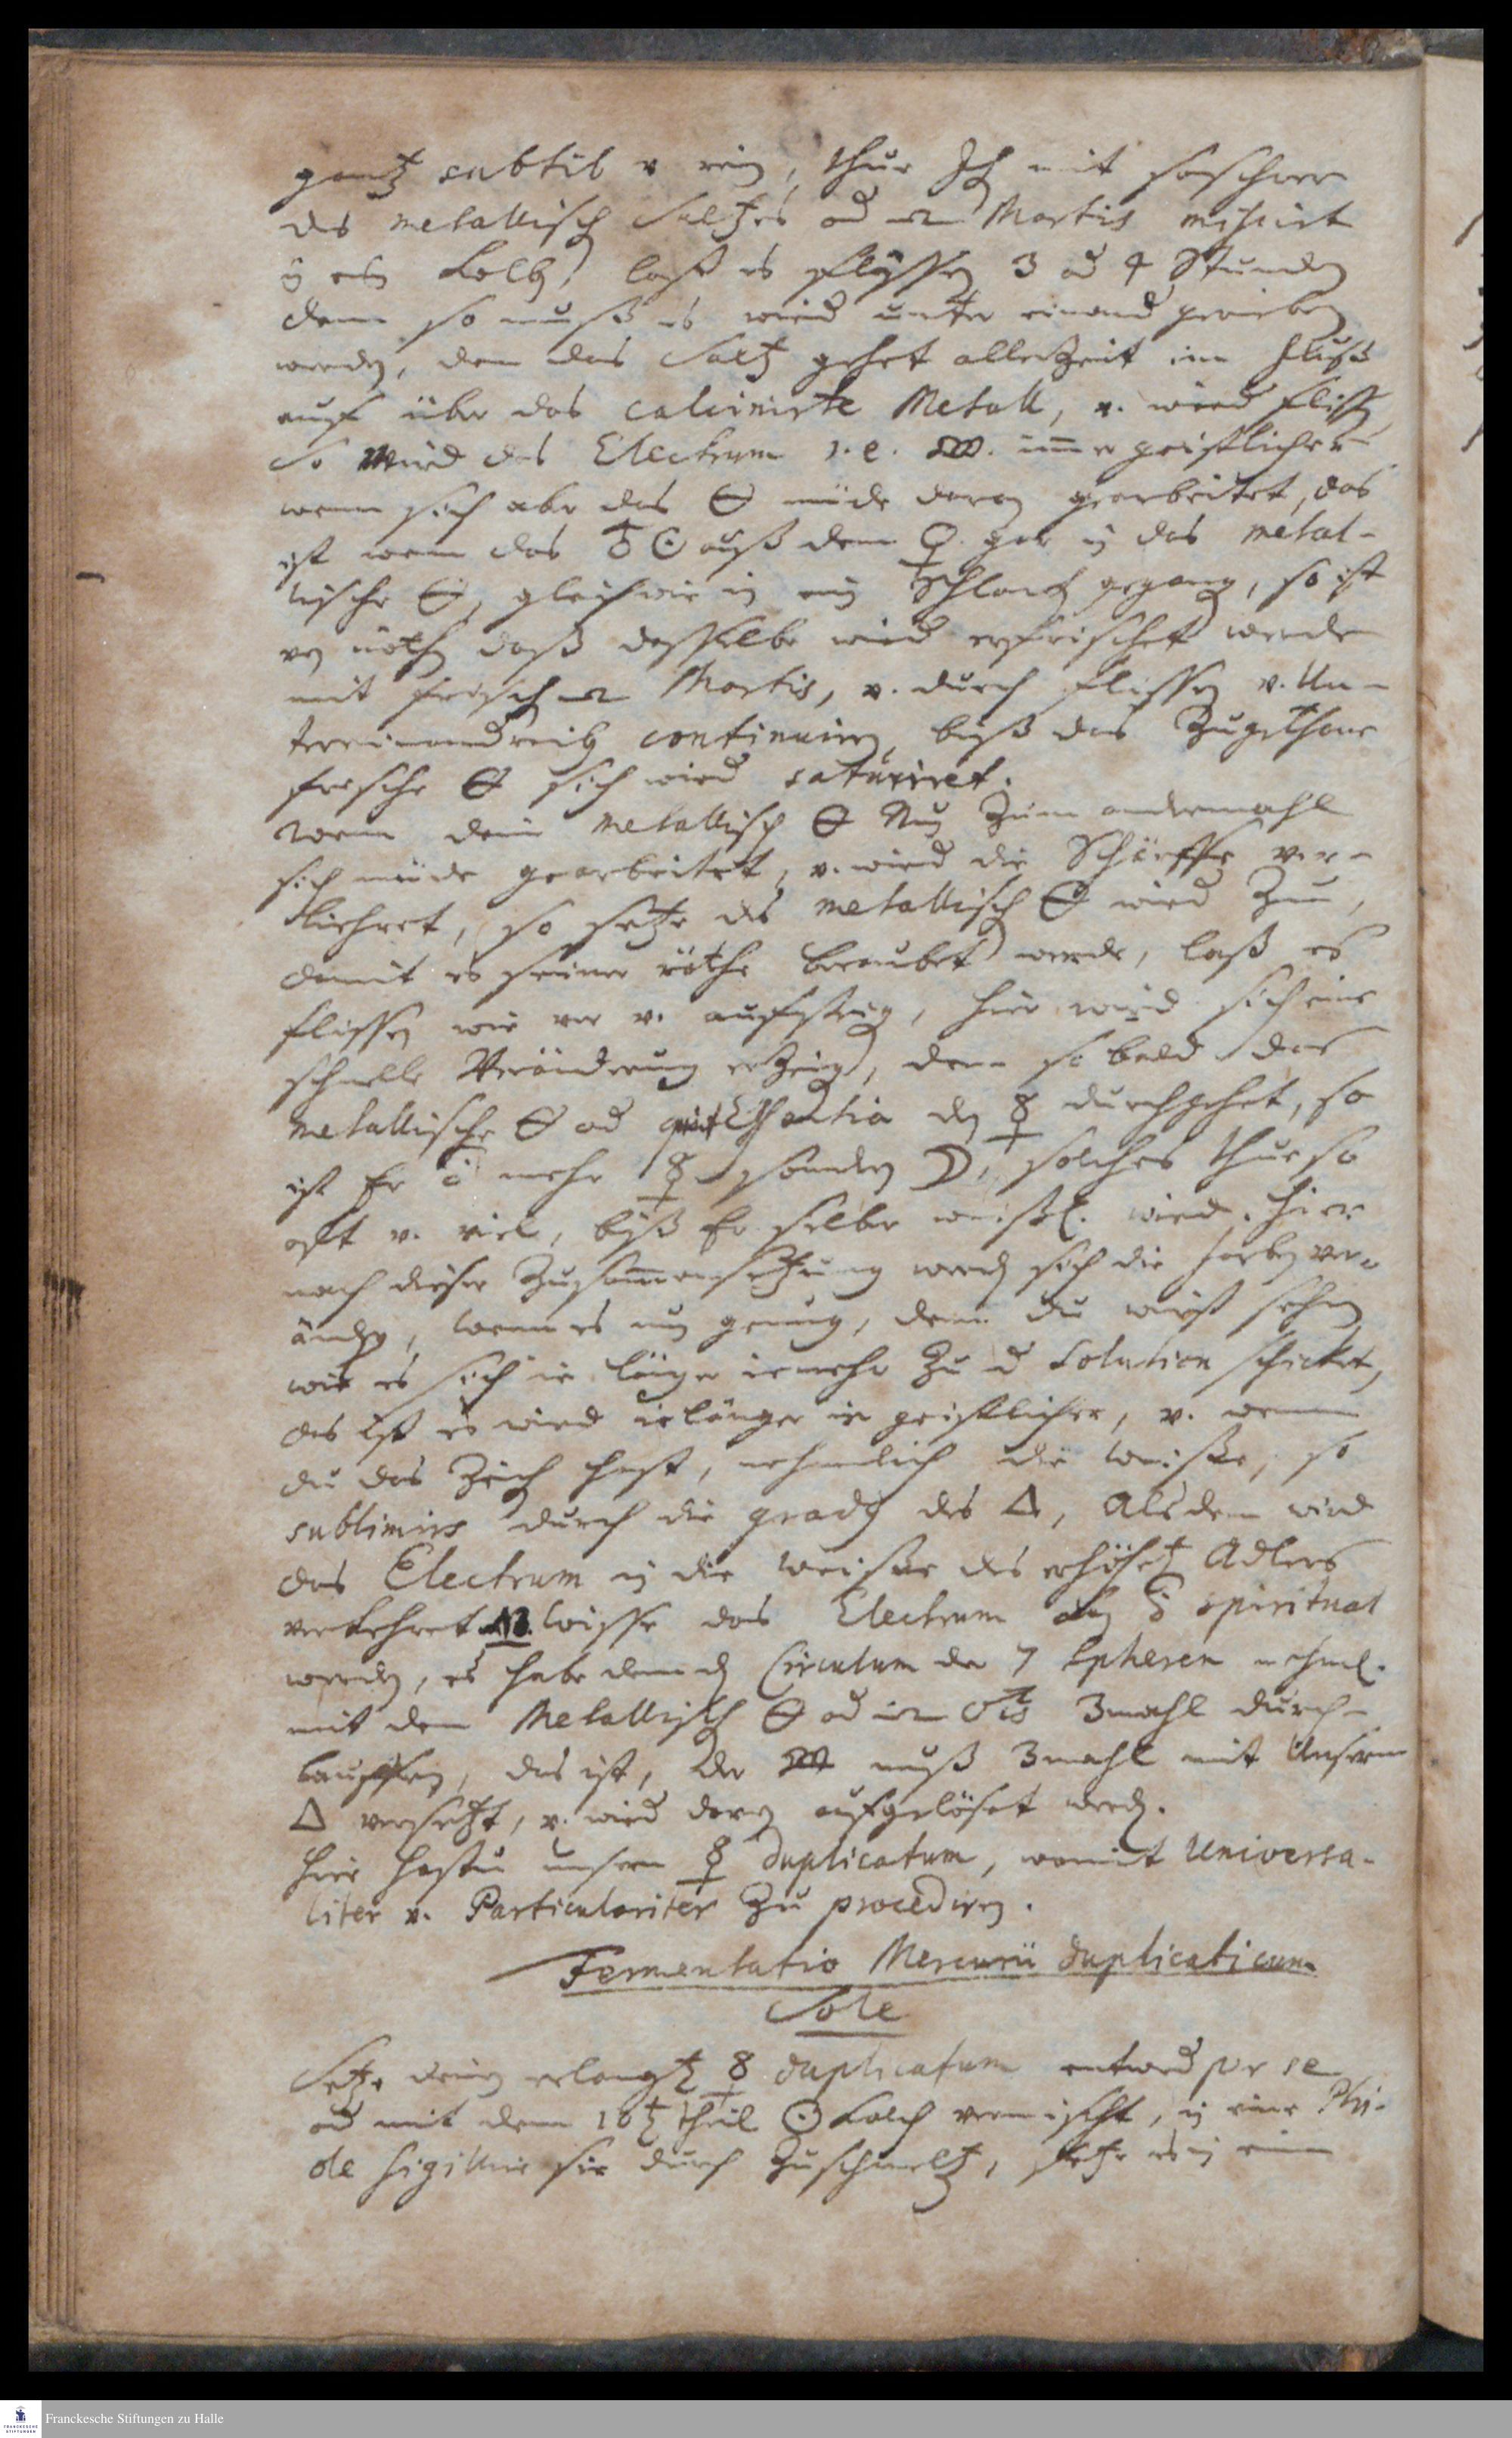 gantz subtil v. rein, thue Ihn mit so schwer
des metallisch Saltzes od 🜔 Martis misciret
in ein Kolb, laß es flyssen 3 od 4 Stunden
dann so muß es wied unter einand gerieben
werden, den das Saltz gehet allezeit im Fluß
auf über das calcinirte Metall, v. wied fliss
So wird das Electrum i.e. immer geistlicher
wenn sich aber das 🜔 müde daran gearbeitet, das
ist wenn das ♁ ☉ auß dem ♀ gar in das metal-
lische 🜔, gleichwie in ein Schlack gegang, so ist
von nöthen daß dasselbe wied erfrischet werde
mit frisch Martis, v. durch flissen v. Un-
tereinandreib continuiren, biß das Zugethane
frische 🜔 sich wied saturiret.
Wenn dein metallisch 🜔 Nun Zum andermahl
sich müde gearbeitet, v. wied die Schärffe ver-
liehret, so setze des metallisch 🜔 wied Zu,
damit es seiner röthe beraubet werde, laß es
flissen wie vor v. aufsteig, hier wird sich eine
schnelle Veränderung erzeig, denn so bald das
metallische 🜔 od quintEssentia den ☿ durchgehet, so
ist Er mehr ☿ sondern ☽, solches thue so
oft v. viel, biß Er selber weiß wird. hier
nach dieser Zusammensetzung werd sich die farben ver-
ändern, wenn es nun genung, denn du wirst sehen
wie es sich ie länger iemehr Zu d Solution schicket,
das ist es wird ielänger ie geistlicher, v. wenn
du das Zeich hast, nehmlich die weisse, so
sublimirs durch die grade des 🜂, Alsdenn wird
das Electrum in die weisse des erhöhet Adlers
verkehret NB. wisse das Electrum spiritual
werden, es habe denn den Circulum der 7 Spheren nehml.
mit dem Metallisch 🜔 od ♂tis 3mahl durch-
lauffen, das ist, der muß 3mahl mit Unserm
🜂 versetzt, v. wied darin aufgelöset werd.
hier hastu unsern ☿ duplicatum, womit Universa-
liter v. Particulariter Zu procediren.
Fermentatio Mercurii duplicati cum
Sole
Setze dein erlangt ☿ duplicatum entwed per se
od mit dem 10t theil ☉ kalch vermischt, in eine Phi-
ole sigillir sie durch Zuschmeltz, setze es in ein
Franckesche Stiftungen zu Halle